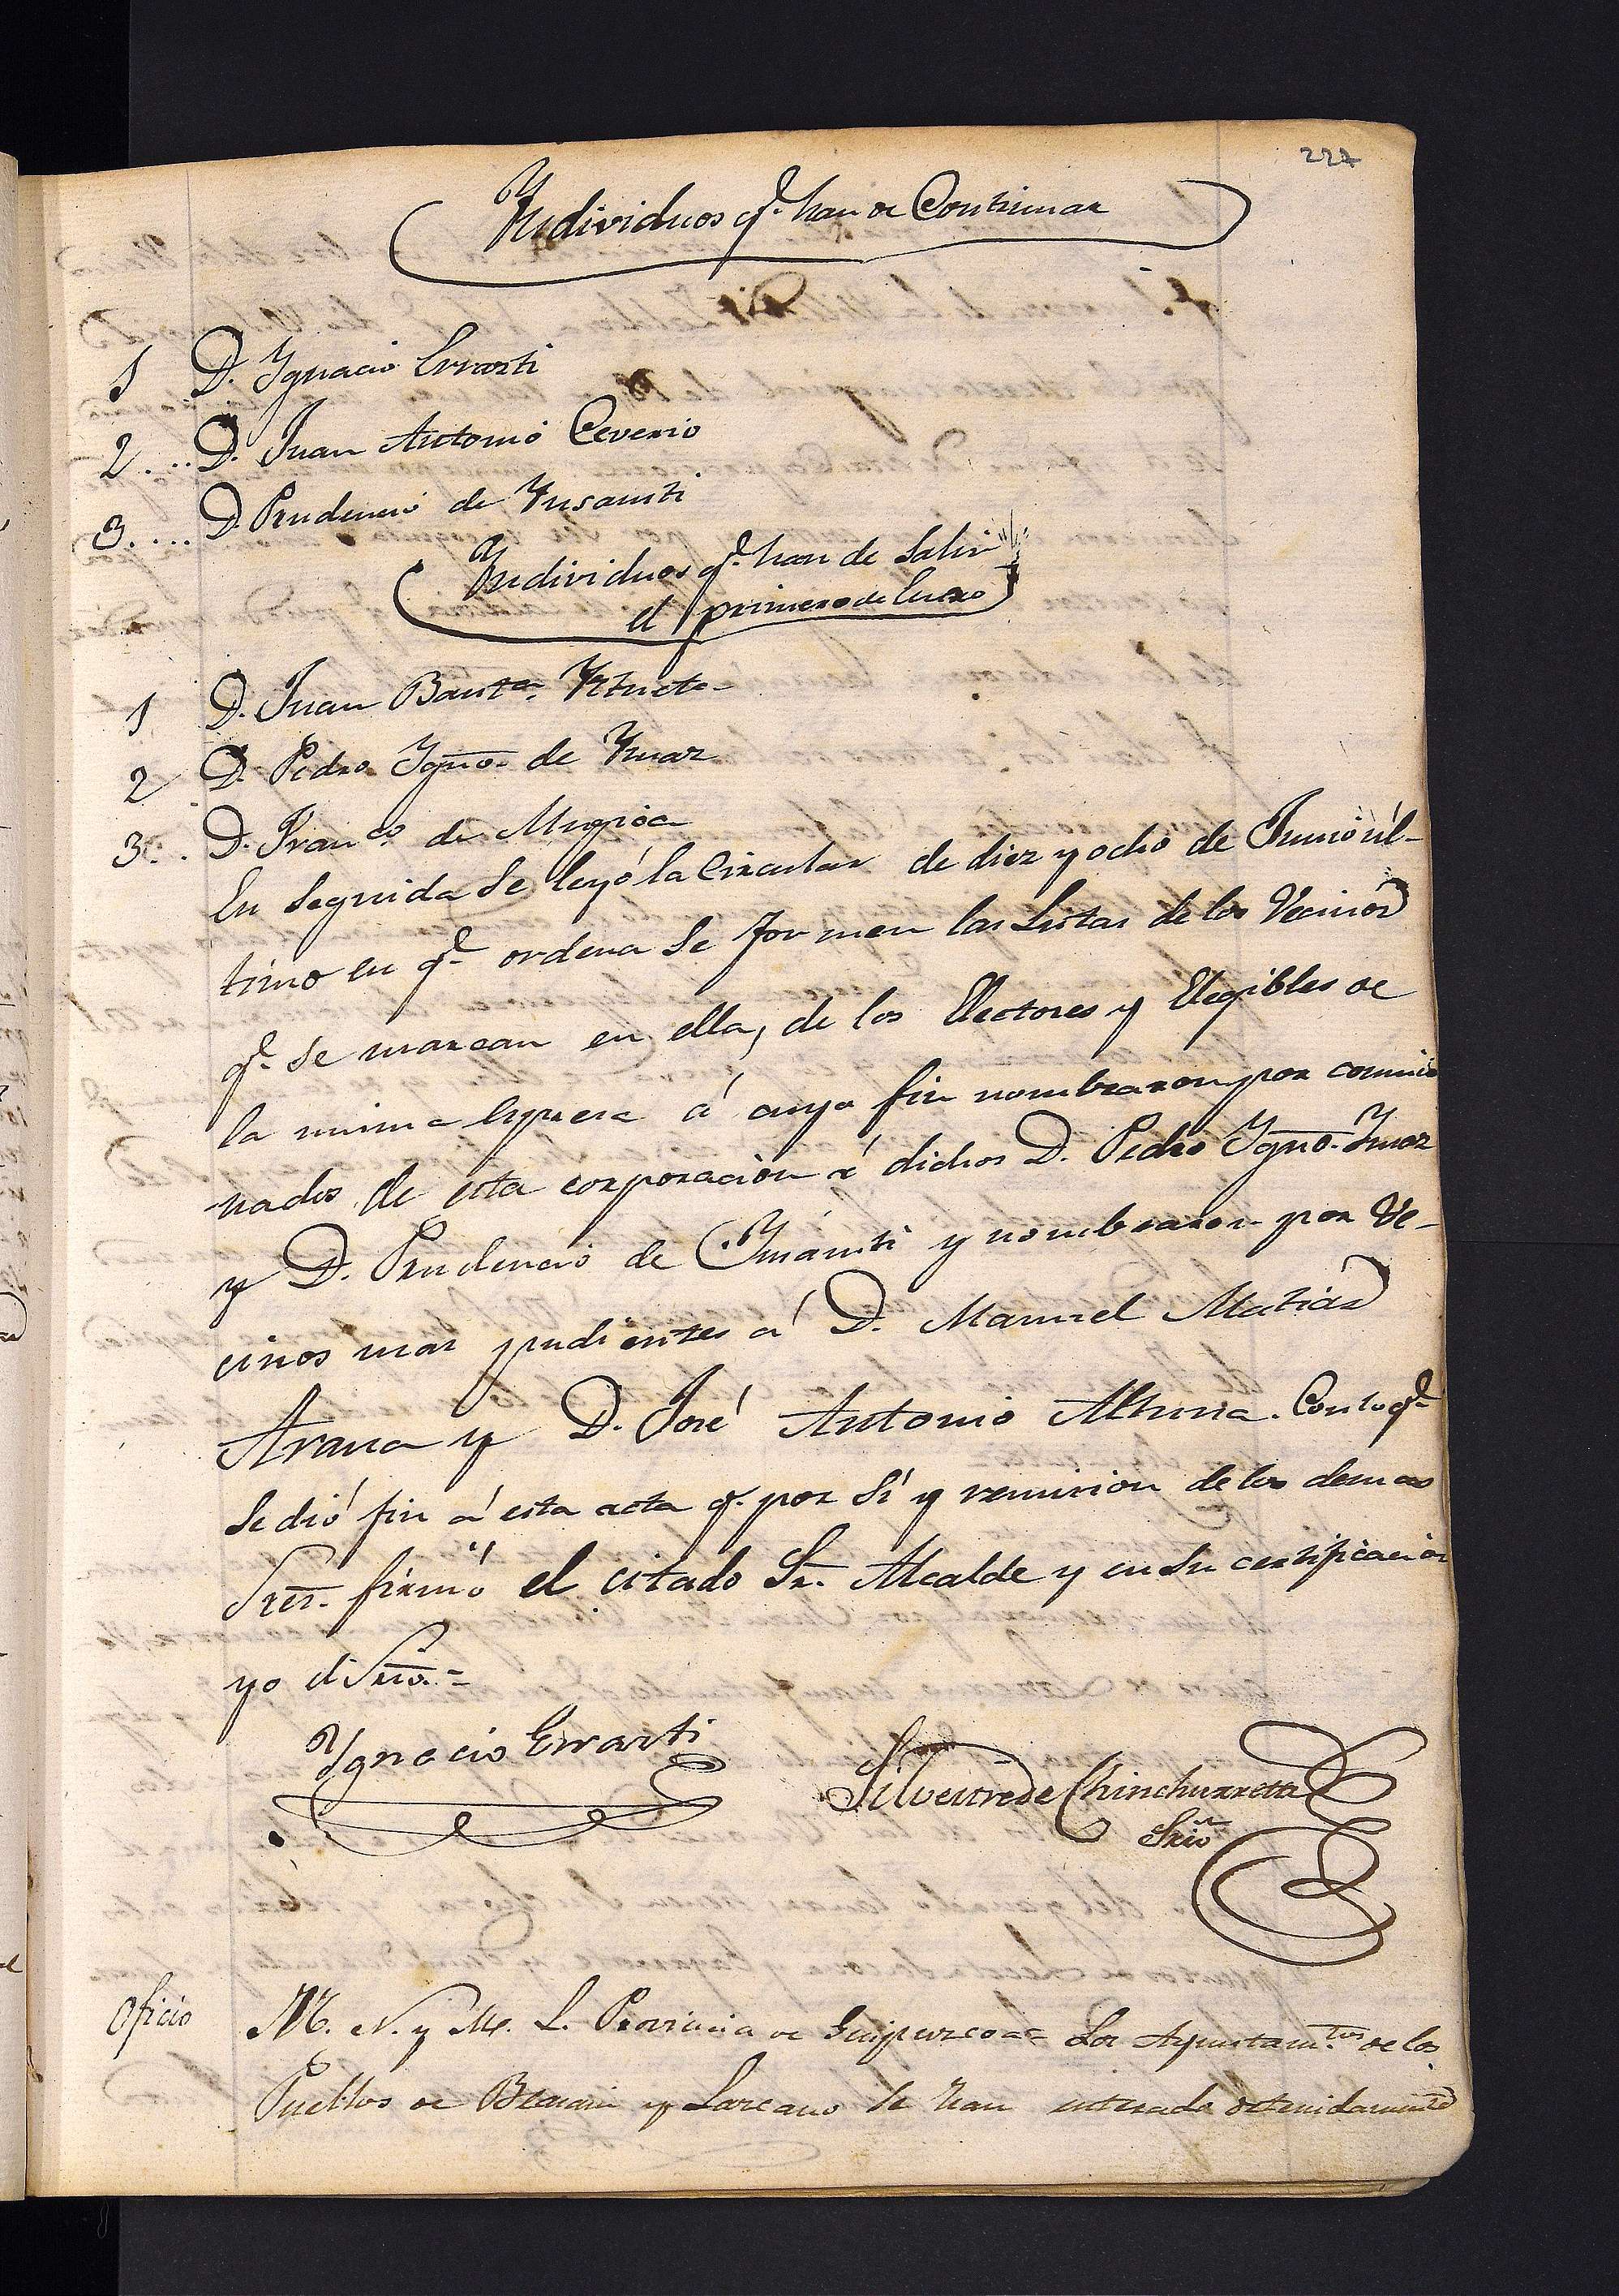 227
Individuos q.e han de Continuar
1 D. Ygnacio Errasti
2.... D. Juan Antonio Ceverio
3.... D. Prudencio de Ynsausti
Individuos q.e han de Salir
el primero de Enero
1 D. Juan Baut.ta
2 D. Pedro Ygno. de Ymaz
3... D. Fran.co de Mugica
En Seguida Se leyó la Circular de diez y ocho de Junio úl-
timo en q.e ordena Se formen las Listas de los Vecinos
q.e Se marcan en ella, de los Electores y Elegibles de
la misma á cuyo fin nombraron por comicio
nados de esta corporación á dichos D. Pedro Ygno. Ymaz
y D. Prudencio de Ynsausti y nombraron por Ve-
cinos mas pudientes á D. Manuel Matias
Arana y D. José Antonio Altuna. Con lo q.e
Se dió fin á esta acta q.e por Sí y remision de los demas
Sres. firmó el citado Sr. Alcalde y en Su certificación
yo el Srio.=
Ygnacio Errasti
Silvestre de Chinchurreta
Srio
Oficio M. N. y M. L. Provincia de Guipuzcoa= Los Ayuntam.tos de los
Pueblos de Beasain y Lazcano Se han enterado detenidamente